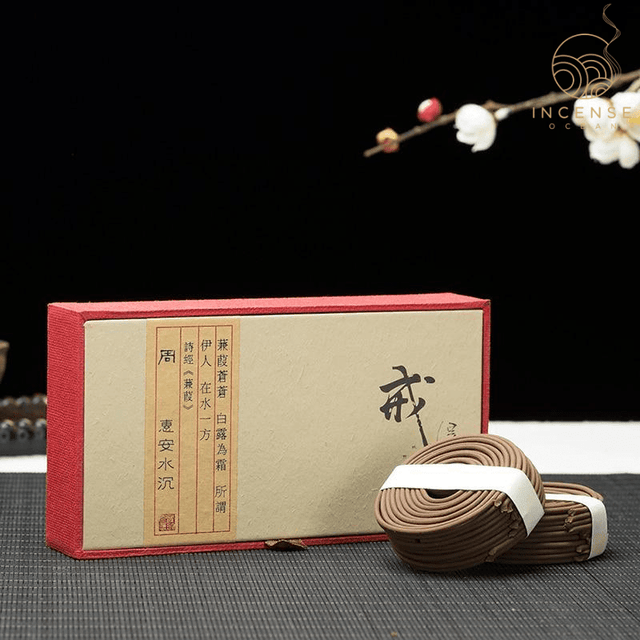 INCENSE
OCEAN
蒹葭蒼蒼 白露為霜 所謂
伊人 在水一方
詩經《蒹葭》
周
惠安水沉
戒